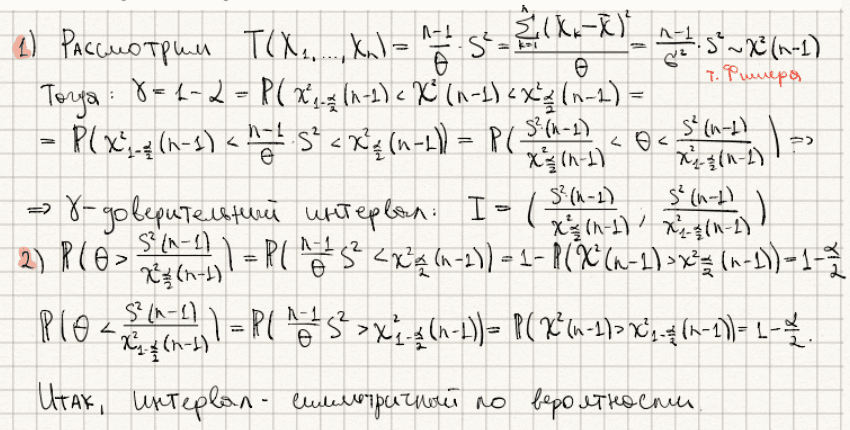 1) Рассмотрим T(X₁,...,Xₙ) = \frac{n-1}{θ} · S² = \frac{\sum_{k=1}^{n} (X_k - \bar{X})^2}{θ} = \frac{n-1}{σ²} · S² ~ χ²(n-1)
т. Фишера
Тогда: γ = 1 - α = P(χ²_{1-\frac{α}{2}}(n-1) < χ²(n-1) < χ²_{\frac{α}{2}}(n-1) =
= P(χ²_{1-\frac{α}{2}}(n-1) < \frac{n-1}{θ} · S² < χ²_{\frac{α}{2}}(n-1)) = P(\frac{S²·(n-1)}{χ²_{\frac{α}{2}}(n-1)} < θ < \frac{S²(n-1)}{χ²_{1-\frac{α}{2}}(n-1)}) ⇒
⇒ γ-доверительный интервал: I = (\frac{S²(n-1)}{χ²_{\frac{α}{2}}(n-1)} ; \frac{S²(n-1)}{χ²_{1-\frac{α}{2}}(n-1)})
2) P(θ > \frac{S²(n-1)}{χ²_{\frac{α}{2}}(n-1)}) = P(\frac{n-1}{θ} S² < χ²_{\frac{α}{2}}(n-1)) = 1 - P(χ²(n-1) > χ²_{\frac{α}{2}}(n-1)) = 1 - \frac{α}{2}
P(θ < \frac{S²(n-1)}{χ²_{1-\frac{α}{2}}(n-1)}) = P(\frac{n-1}{θ} S² > χ²_{1-\frac{α}{2}}(n-1)) = P(χ²(n-1) > χ²_{1-\frac{α}{2}}(n-1)) = 1 - \frac{α}{2}.
Итак, интервал - симметричный по вероятности.